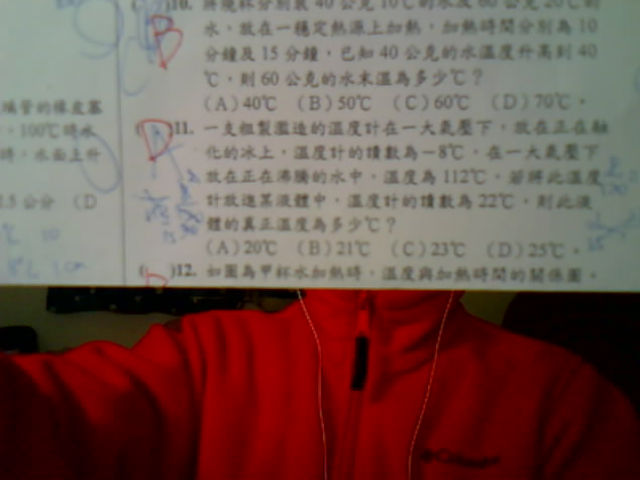 填管的橡皮塞
，100℃時水
時，水面上升
1.5公分 (D
10. 將幾杯分別裝40公克10℃的水及60公克20℃的
水，放在一穩定熱源上加熱，加熱時間分別為10
分鐘及15分鐘，已知40公克的水溫度升高到40
℃，則60公克的水末溫為多少℃？
(A)40℃ (B)50℃ (C)60℃ (D)70℃。
B
( )11. 一支粗製濫造的溫度計在一大氣壓下，放在正在融
化的冰上，溫度計的讀數為－8℃，在一大氣壓下
放在正在沸騰的水中，溫度為112℃。若將此溫度
計放進某液體中，溫度計的讀數為22℃，則此液
體的真正溫度為多少℃？
(A)20℃ (B)21℃ (C)23℃ (D)25℃。
D
( )12. 如圖為甲杯水加熱時，溫度與加熱時間的關係圖。
D
Columbia